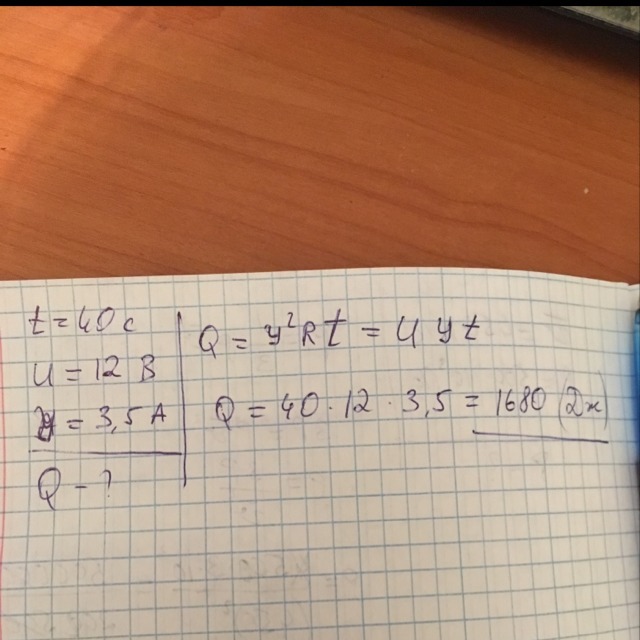 t = 40 с
U = 12 В
У = 3,5 А
Q - ?
Q = У²Rt = UУt
Q = 40 · 12 · 3,5 = 1680 (Дж)